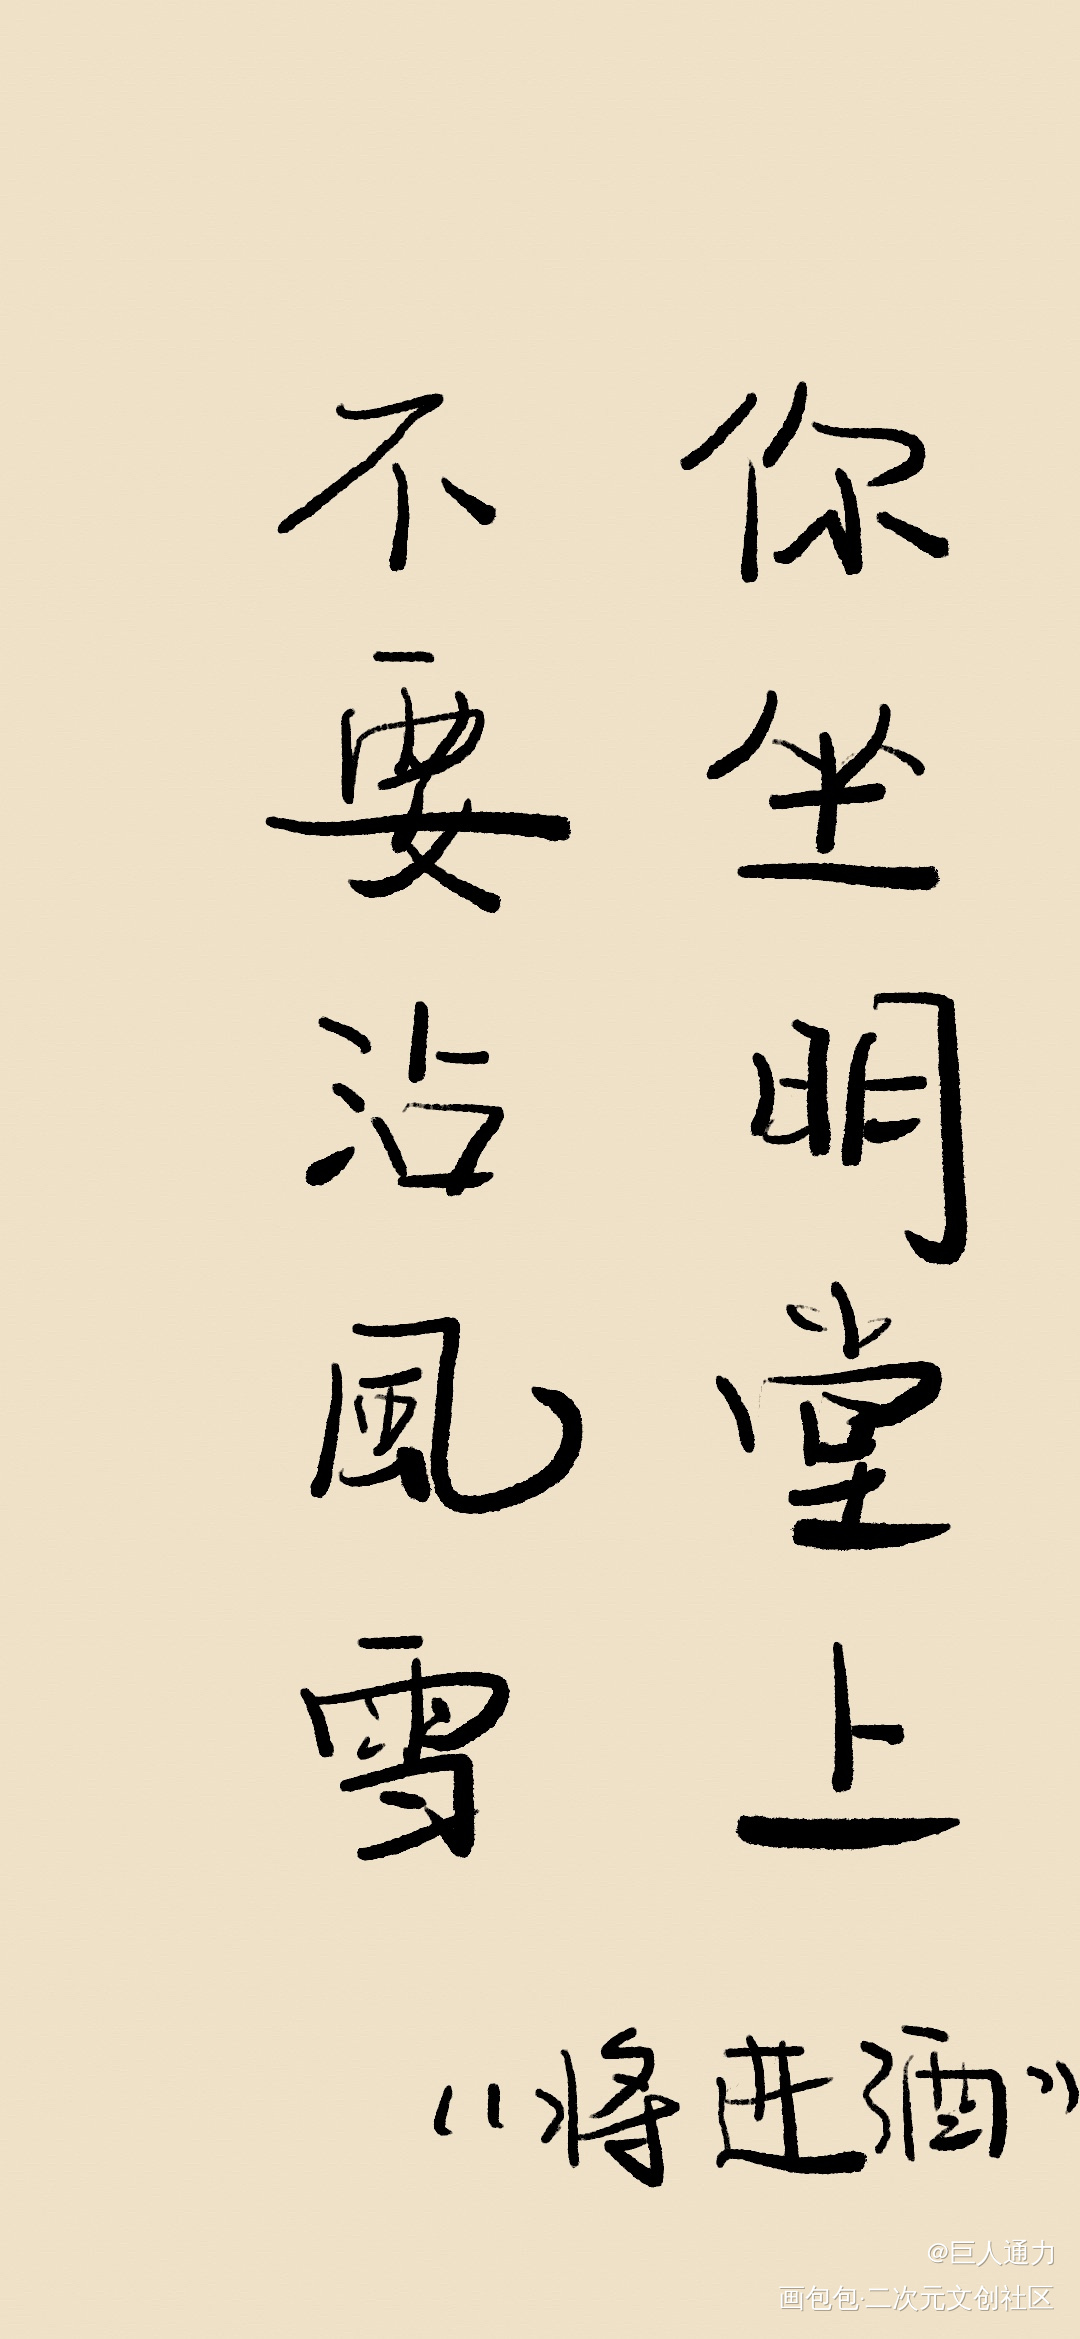 你坐明堂上
不要沾風雪
“将进酒”
@巨人通力
画包包·二次元文创社区